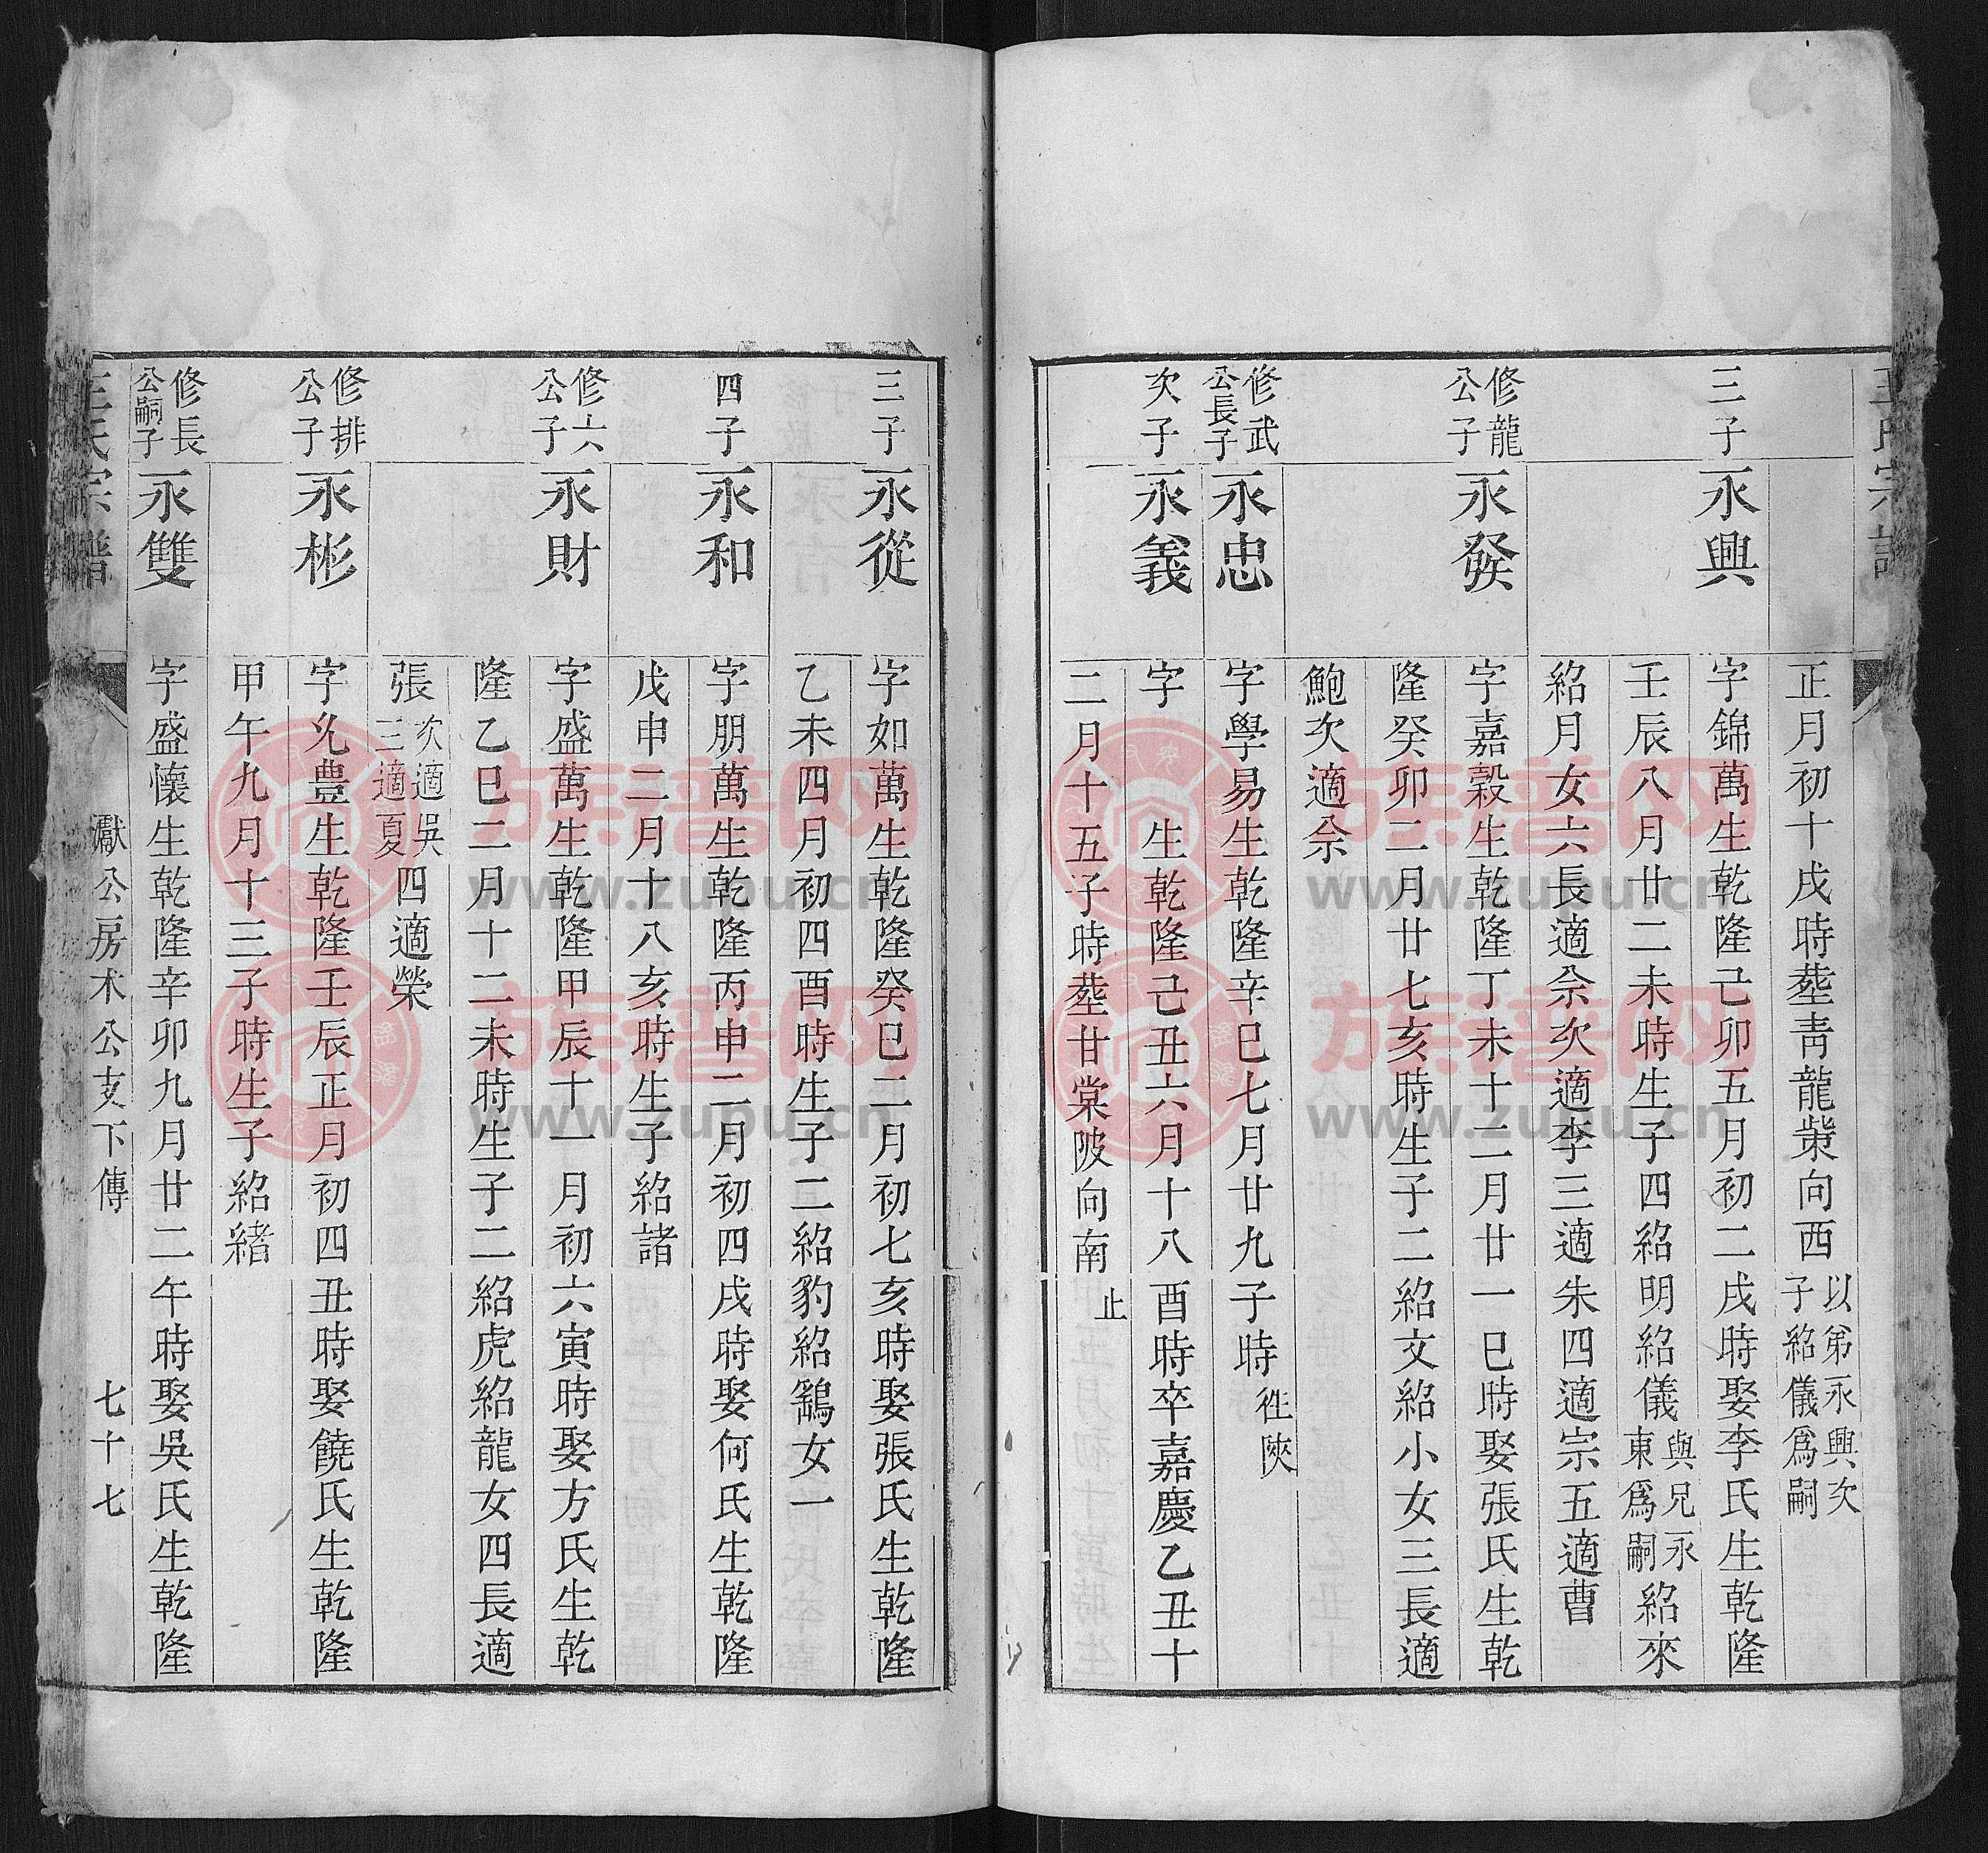 正月初十戌時塟青龍柴向西 以弟永興次子紹儀爲嗣
三子
永興
字錦萬生乾隆己卯五月初二戌時娶李氏生乾隆
壬辰八月廿二未時生子四紹明紹儀 與兄永東爲嗣 紹來
紹月女六長適佘次適李三適朱四適宗五適曹
修龍公子
永發
字嘉穀生乾隆丁未十二月廿一巳時娶張氏生乾
隆癸卯二月廿七亥時生子二紹文紹小女三長適
鮑次適佘
修武公長子
永忠
字學易生乾隆辛巳七月廿九子時 徃陝
次子
永義
字 生乾隆己丑六月十八酉時卒嘉慶乙丑十
二月十五子時塟甘棠陂向南 止
三子
永從
字如萬生乾隆癸巳二月初七亥時娶張氏生乾隆
乙未四月初四酉時生子二紹豹紹鷂女一
四子
永和
字朋萬生乾隆丙申二月初四戌時娶何氏生乾隆
戊申二月十八亥時生子紹諸
修六公子
永財
字盛萬生乾隆甲辰十一月初六寅時娶方氏生乾
隆乙巳二月十二未時生子二紹虎紹龍女四長適
張 次適吳三適夏 四適榮
修排公子
永彬
字允豊生乾隆壬辰正月初四丑時娶饒氏生乾隆
甲午九月十三子時生子紹緒
修長公嗣子
永雙
字盛懷生乾隆辛卯九月廿二午時娶吳氏生乾隆
王氏宗譜
獻公房术公支下傳
七十七
族譜网
www.zupu.cn
族譜网
www.zupu.cn
族譜网
www.zupu.cn
族譜网
www.zupu.cn